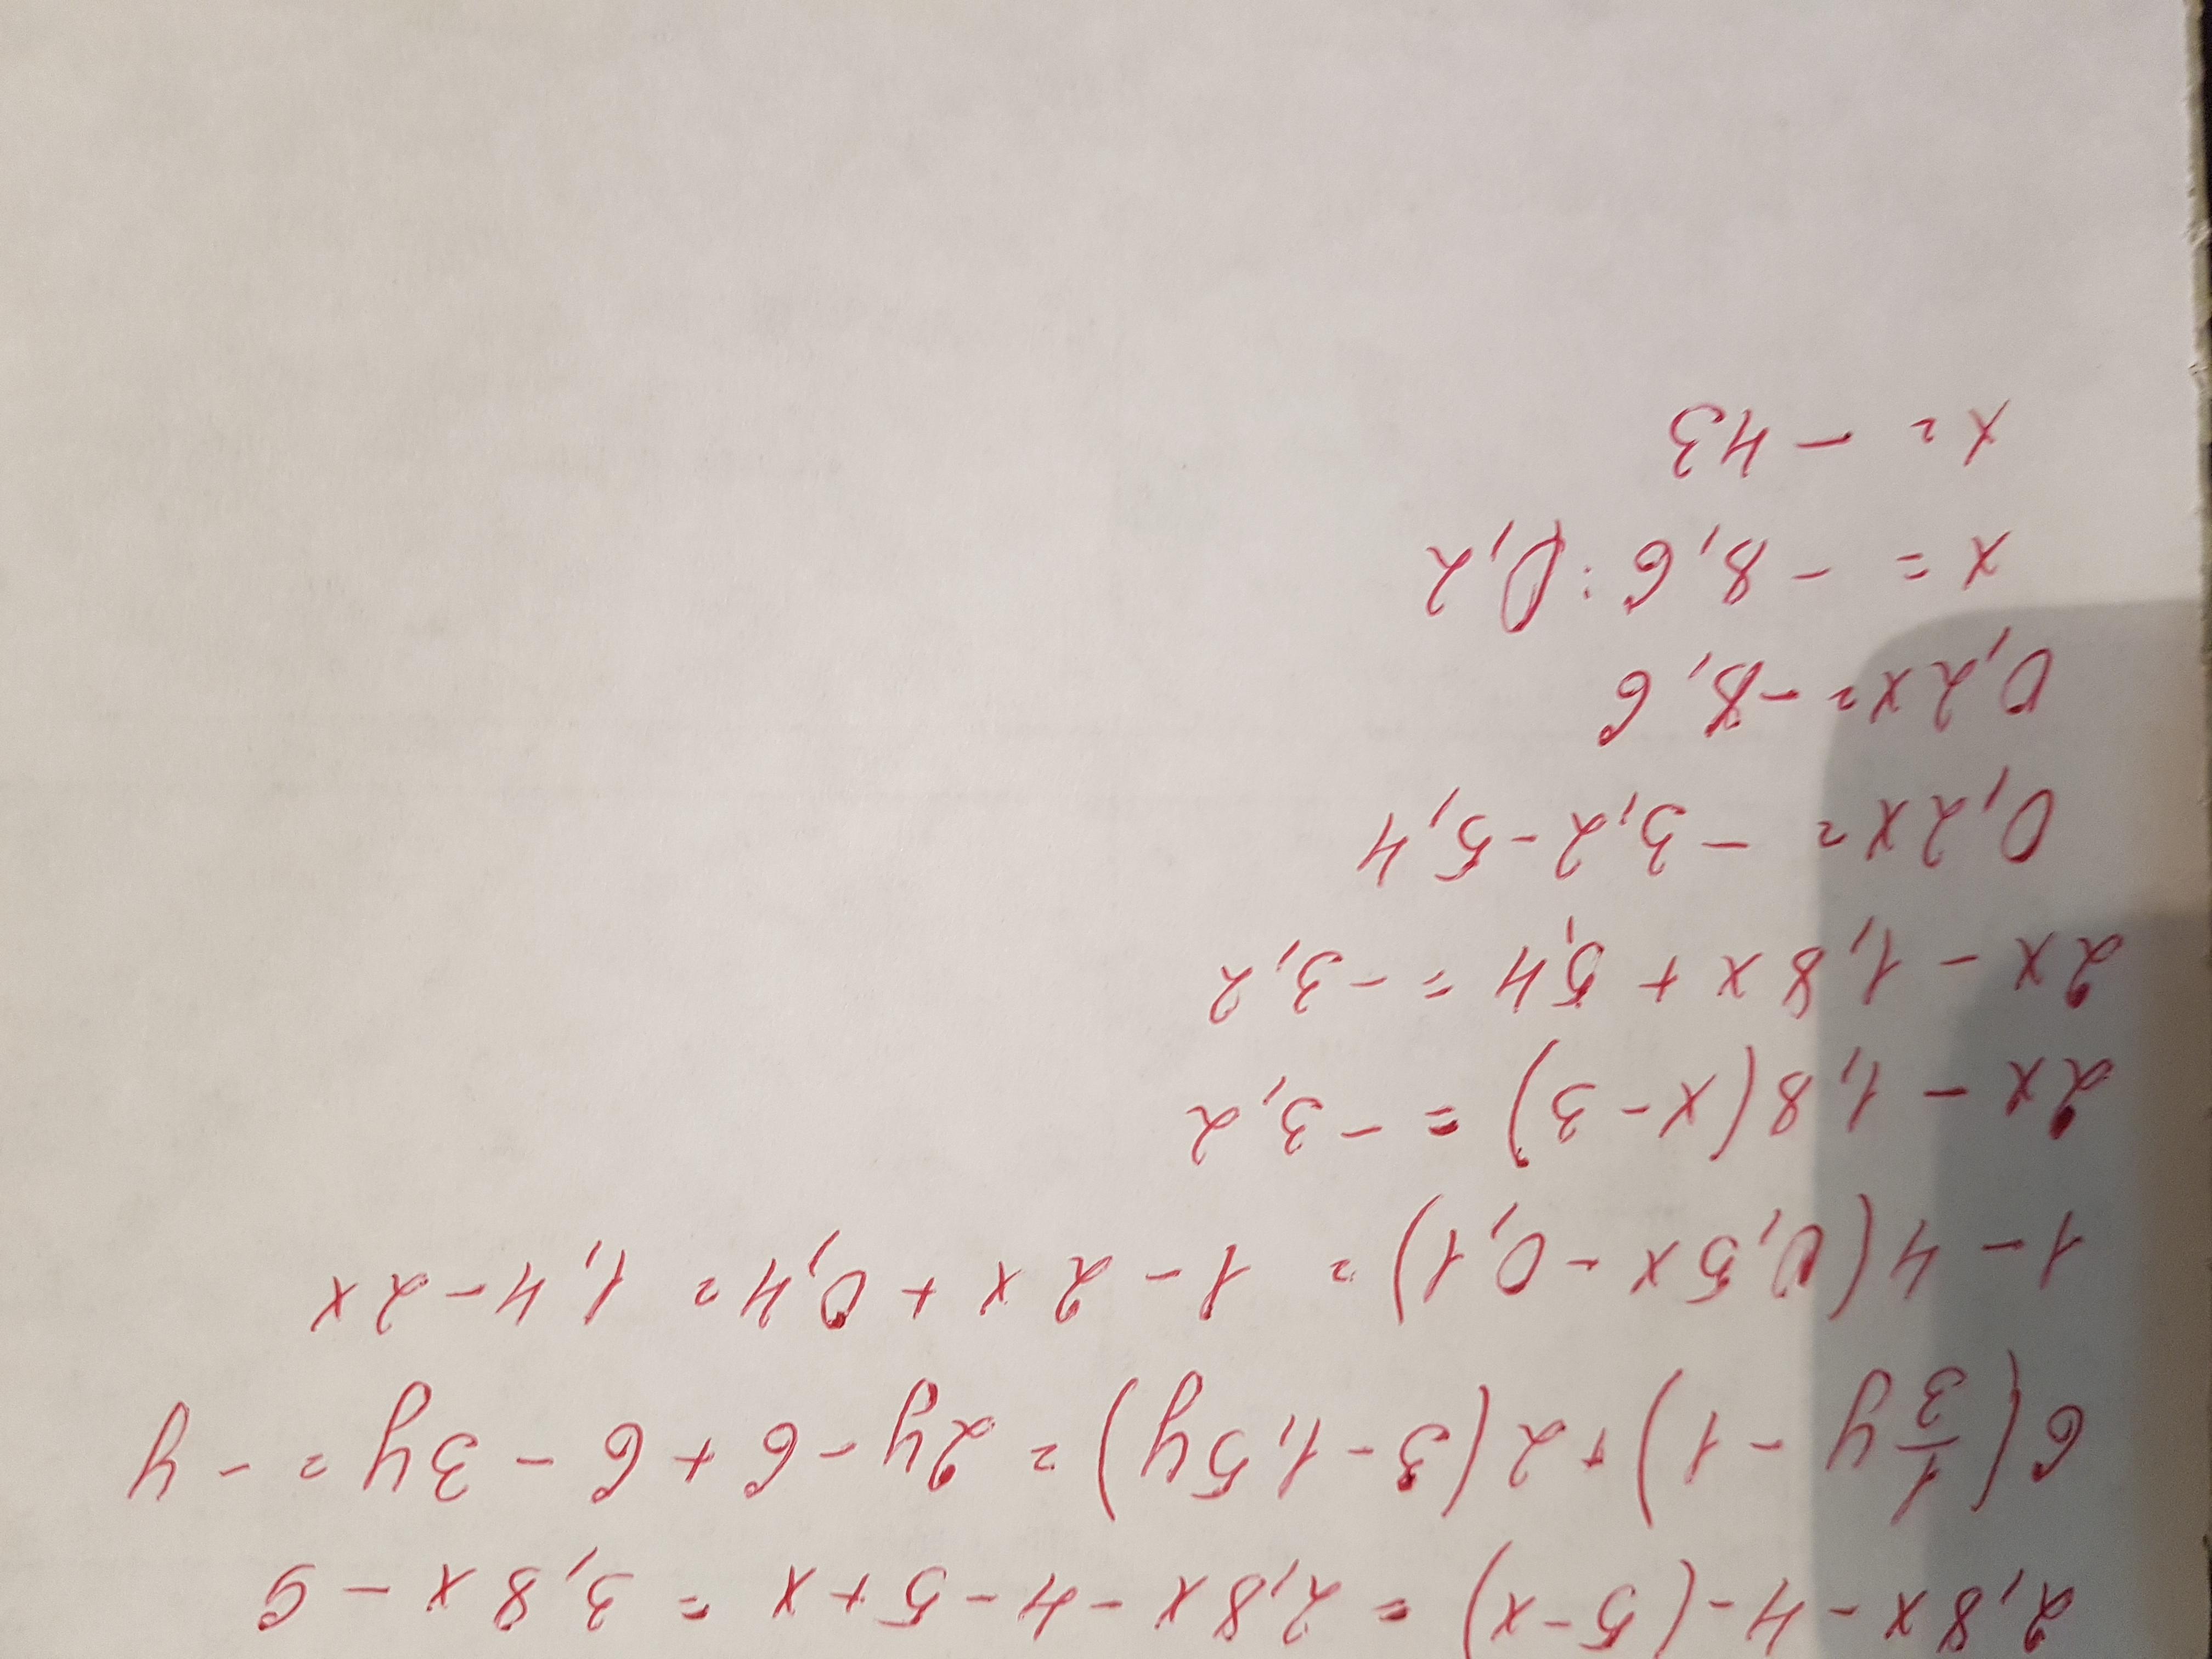 2,8x - 4 - (5-x) = 2,8x - 4 - 5 + x = 3,8x - 9
6(1/3y - 1) + 2(3 - 1,5y) = 2y - 6 + 6 - 3y = - y
1 - 4(0,5x - 0,1) = 1 - 2x + 0,4 = 1,4 - 2x
2x - 1,8(x - 3) = - 3,2
2x - 1,8x + 5,4 = - 3,2
0,2x = - 3,2 - 5,4
0,2x = - 8,6
x = - 8,6 : 0,2
x = - 43